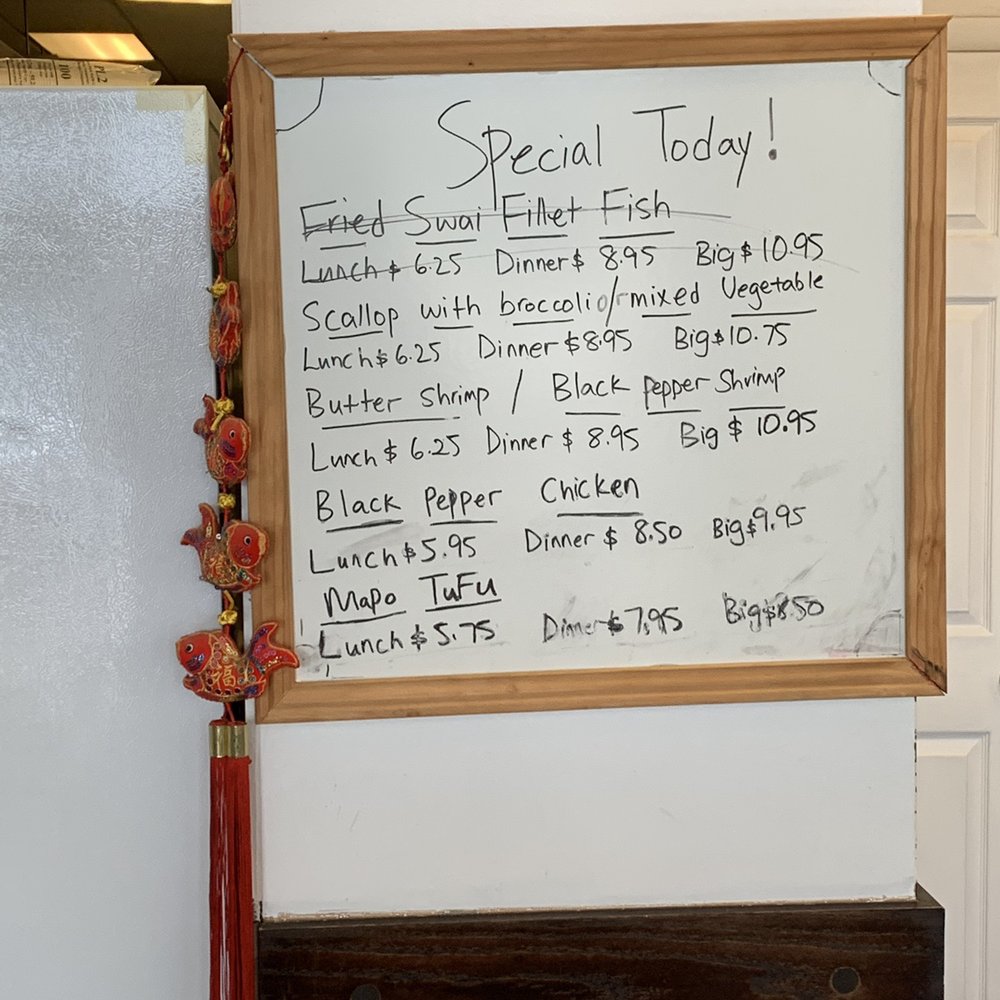 PL2
100
Special Today!
Fried Swai Fillet Fish
Lunch $ 6.25 Dinner $ 8.95 Big $ 10.95
Scallop with broccoli/mixed Vegetable
Lunch $ 6.25 Dinner $ 8.95 Big $ 10.75
Butter shrimp / Black Pepper Shrimp
Lunch $ 6.25 Dinner $ 8.95 Big $ 10.95
Black Pepper Chicken
Lunch $ 5.95 Dinner $ 8.50 Big $ 9.95
Mapo TuFu
Lunch $ 5.75 Dinner $ 7.95 Big $ 8.50
福